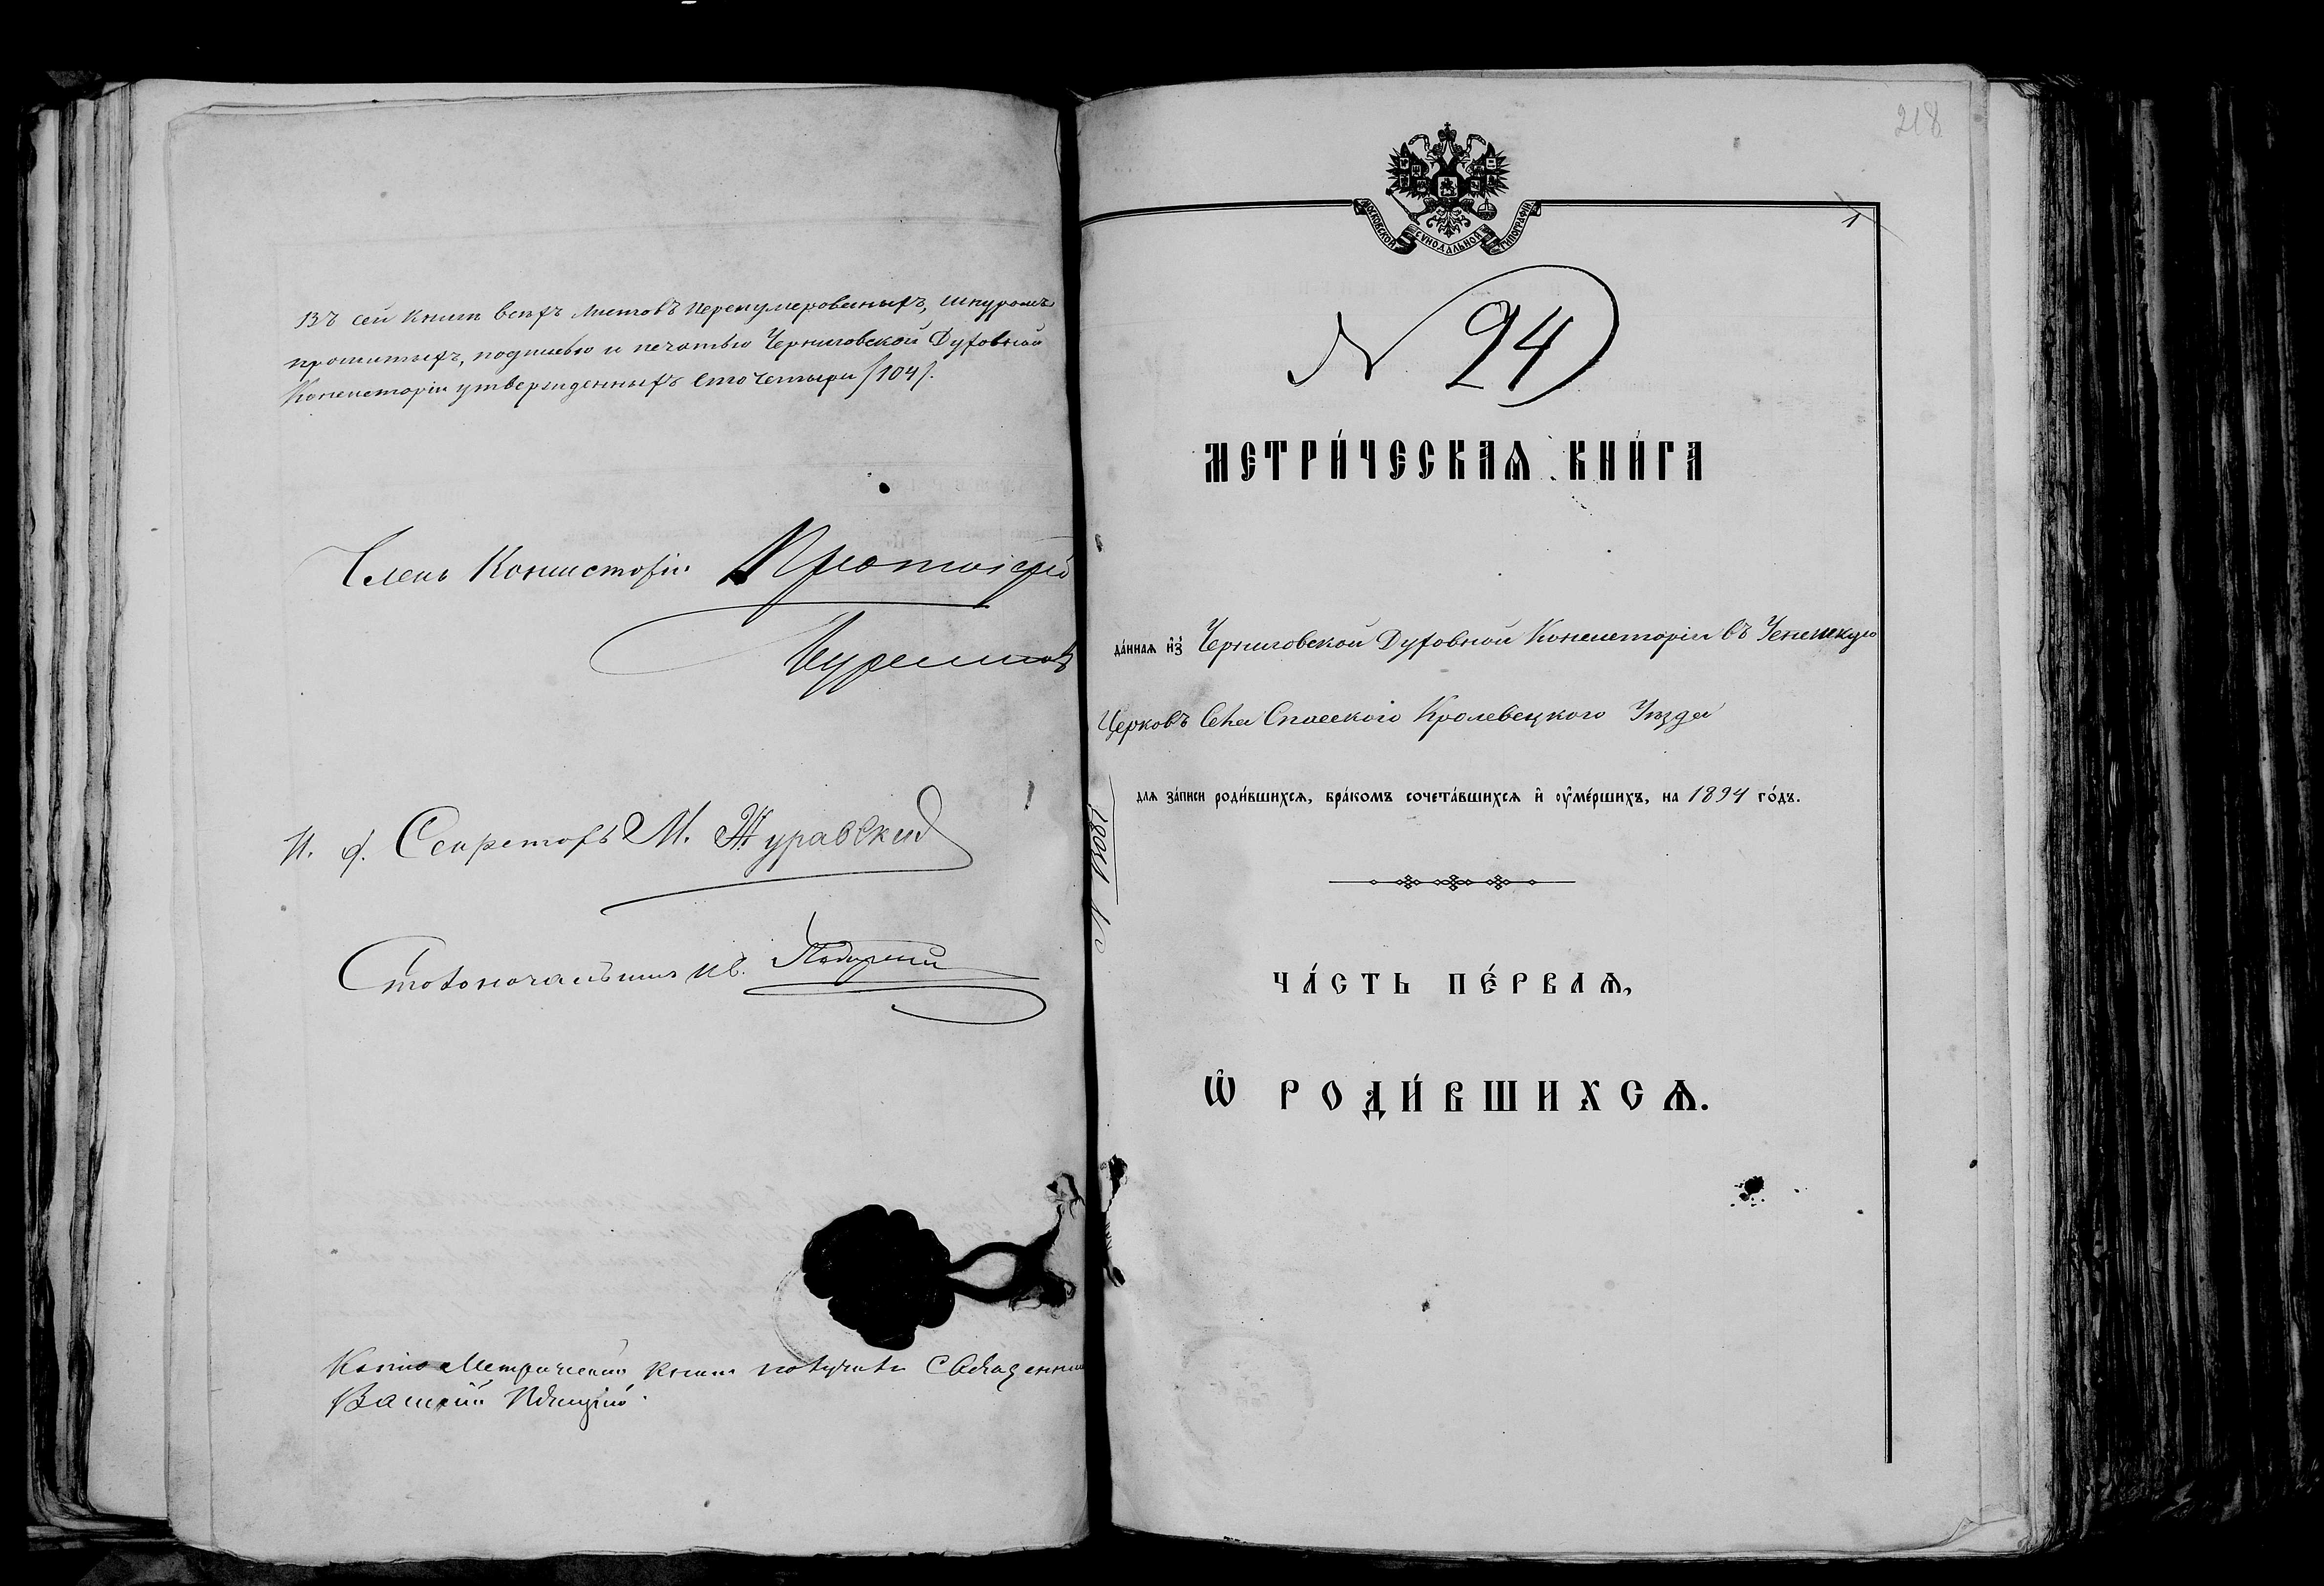 Въ сей книге всѣхъ листовъ перенумерованныхъ, шнуромъ
прошитыхъ, подписью и печатью Черниговской Духовной
Консисторіи утвержденныхъ сто четыри /104/.
Членъ Консисторіи Протоіерей
И. д. Секретаря М. Журавскій
Столоначальникъ
Копію Метрической книги получилъ Священник
218
МОСКОВСКОЙ СѴНОДАЛЬНОЙ ТИПОГРАФІИ
1
N 24
МЕТРИ́ЧЕСКАѦ КНИ́ГА
да́ннаѧ и҆з̾ Черниговской Духовной Консисторіи въ Успенскую
Церковъ Села Спасскаго Кролевецкаго Уѣзда
длѧ за́писи роди́вшихсѧ, бра́комъ сочета́вшихсѧ и҆ оу҆ме́ршихъ, на 1894 го́дъ.
ЧА́СТЬ ПЕ́РВАѦ,
Ѡ҆ РОДИ́ВШИХСѦ.